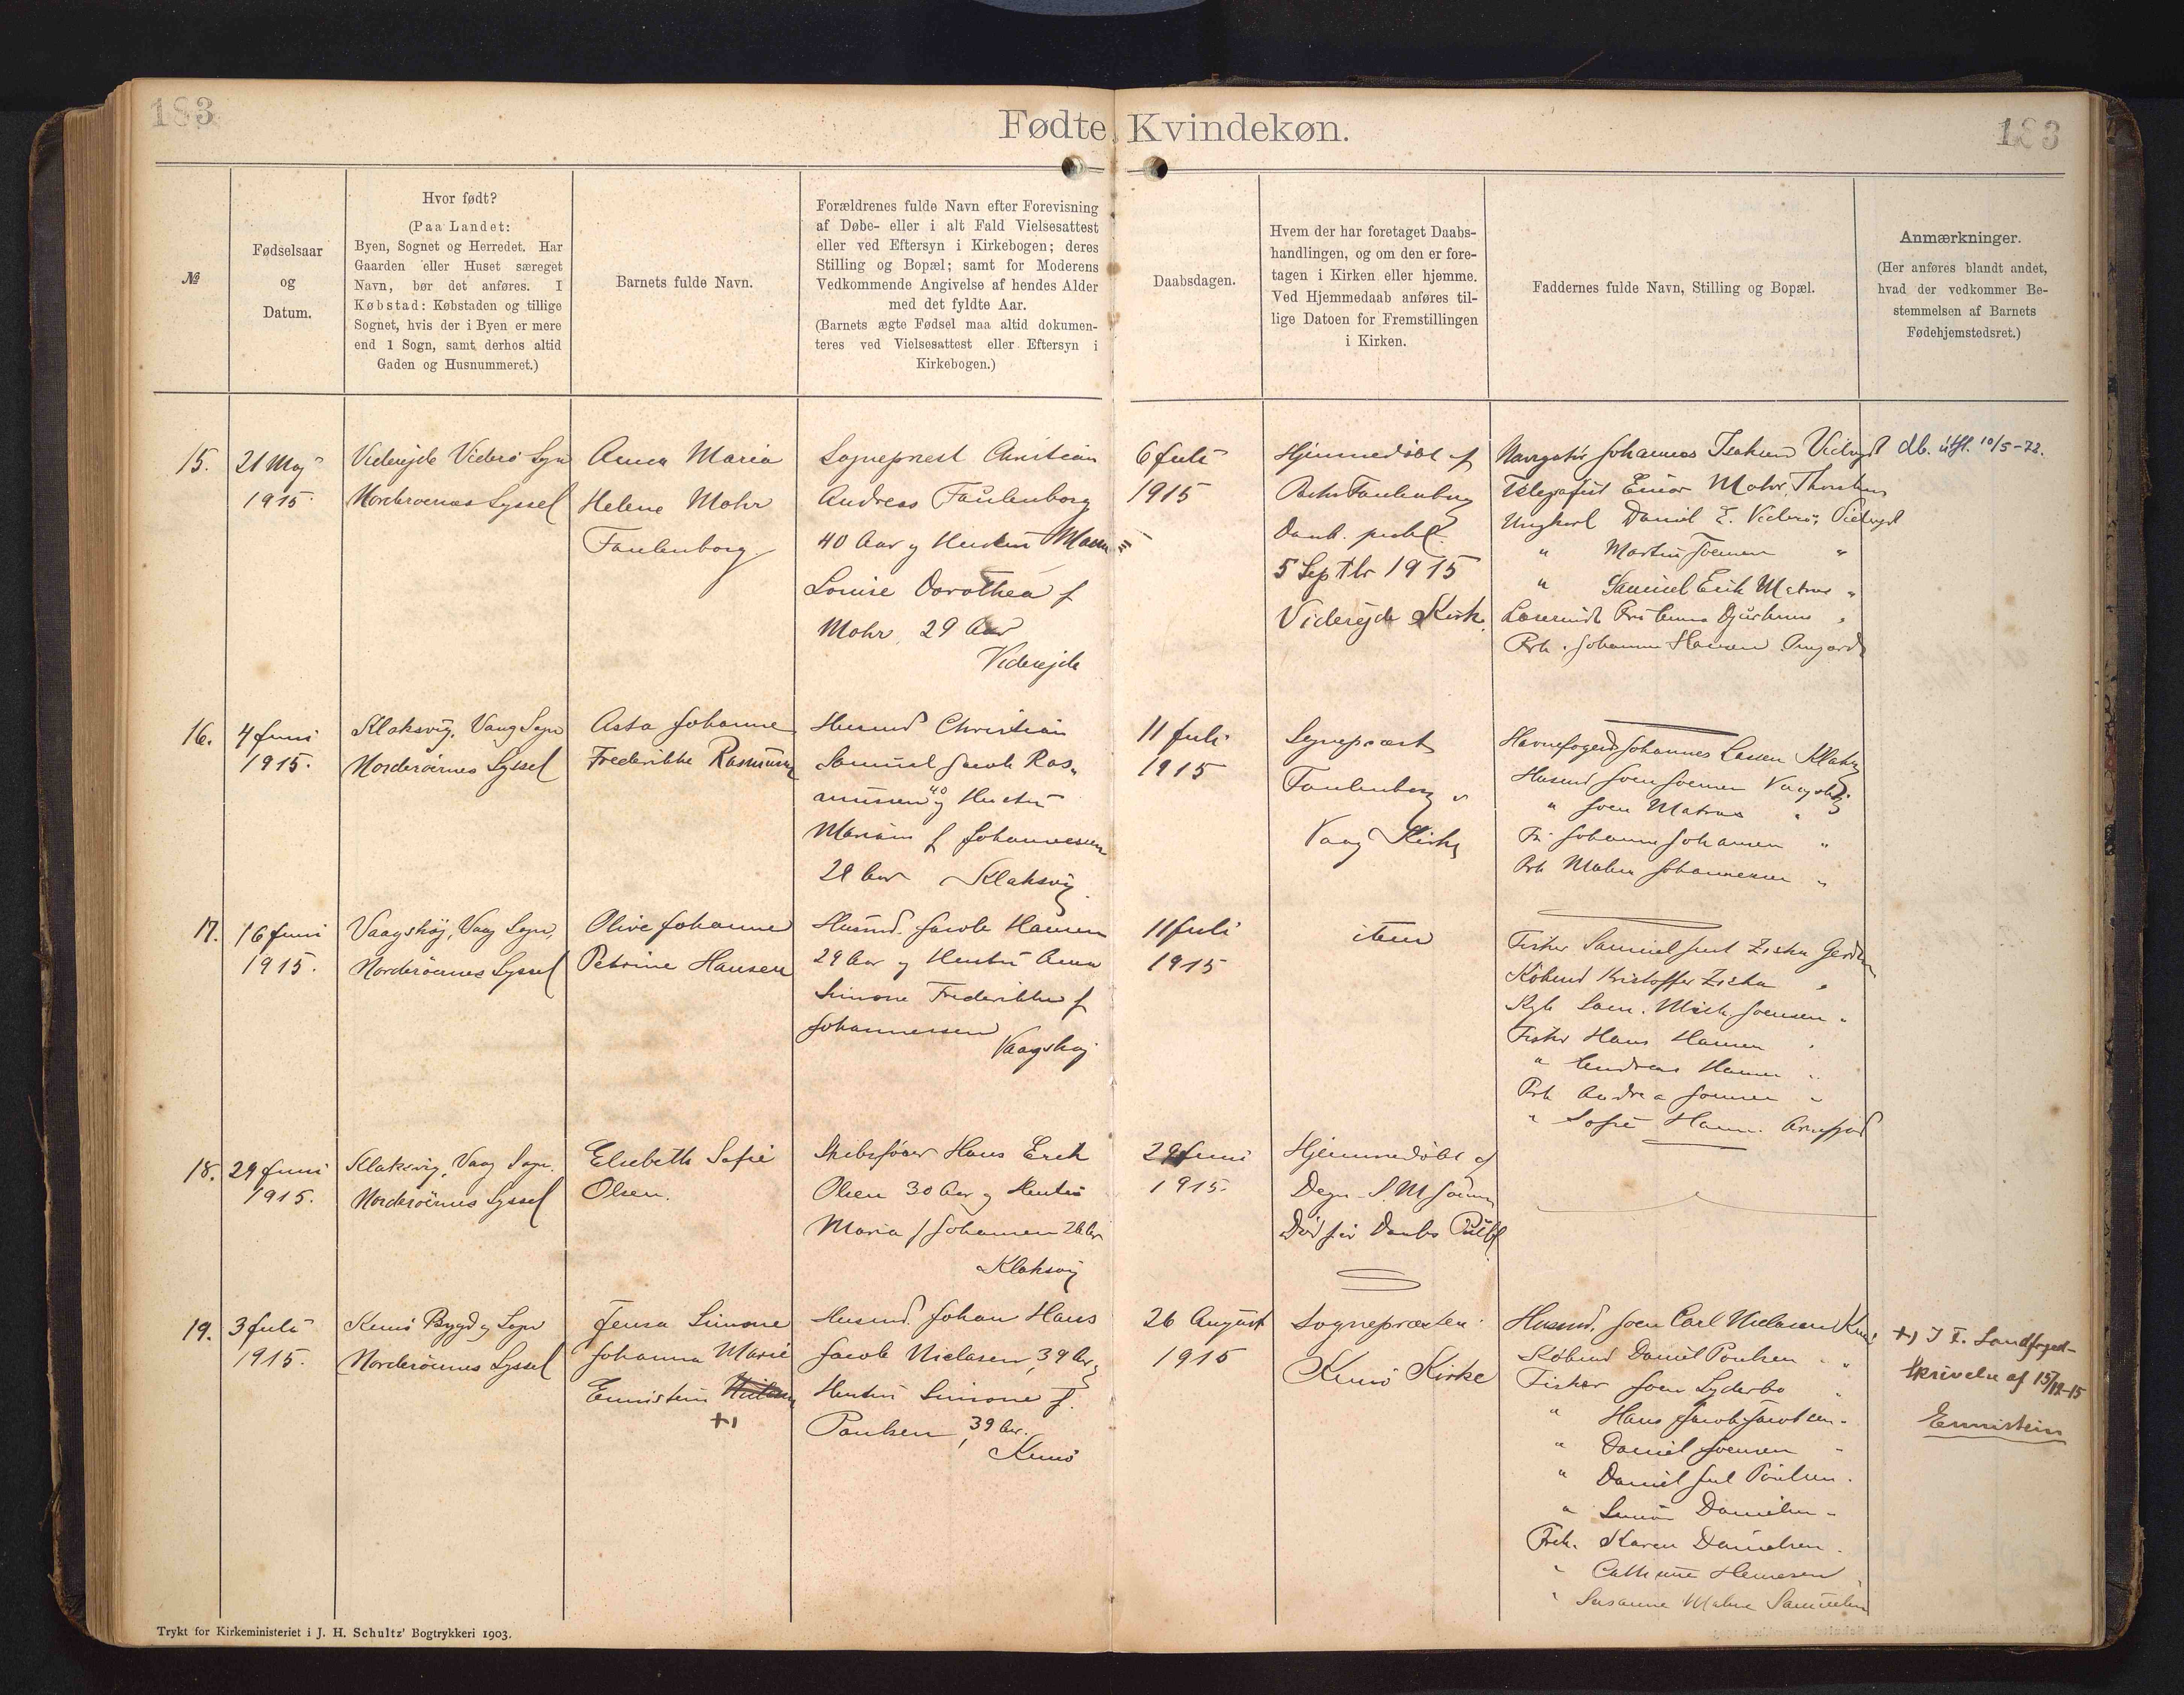 183
Fødte Kvindekøn.
183
№
Fødselsaar
og
Datum.
Hvor født?
(Paa Landet:
Byen, Sognet og Herredet. Har
Gaarden eller Huset særeget
Navn, bør det anføres. I
Købstad: Købstaden og tillige
Sognet, hvis der i Byen er mere
end 1 Sogn, samt derhos altid
Gaden og Husnummeret.)
Barnets fulde Navn.
Forældrenes fulde Navn efter Forevisning
af Døbe- eller i alt Fald Vielsesattest
eller ved Eftersyn i Kirkebogen; deres
Stilling og Bopæl; samt for Moderens
Vedkommende Angivelse af hendes Alder
med det fyldte Aar.
(Barnets ægte Fødsel maa altid dokumen-
teres ved Vielsesattest eller Eftersyn i
Kirkebogen.)
Daabsdagen.
Hvem der har foretaget Daabs-
handlingen, og om den er fore-
tagen i Kirken eller hjemme.
Ved Hjemmedaab anføres til-
lige Datoen for Fremstillingen
i Kirken.
Faddernes fulde Navn, Stilling og Bopæl.
Anmærkninger.
(Her anføres blandt andet,
hvad der vedkommer Be-
stemmelsen af Barnets
Fødehjemstedsret.)
15.
21 Maj
1915.
Viderejde Viderö Sgn
Norderoernes Syssel
Anna Maria
Helene Mohr
Faulenborg.
Sognepræst Christian
Andreas Faulenborg
40 Aar og Hustru
Louise Dorothea f
Mohr, 29 Aar
Viderejde
6 Juli
1915
Hjemmedöbt af
Faulenborg
Daab. publ.
5 Septbr 1915
Viderejde Kirke.
Navigatör Johannes Isaksen Viderejd
Telegrafist Einar Mohr, Thorshavn
Ungkarl Daniel E. Viderö, Viderejd
" Martin Joensen "
" Samuel Erik Matras "
Johanne Hansen
db. útf. 10/5-72.
16.
4 Juni
1915.
Klaksvig, Vaag Sogn
Norderöernes Syssel
Asta Johanne
Frederikke Rasmussen
Husmd Christian
Samuel Jacob Ras-
mussen 40 og Hustru
Mariane f Johannesen
28 Aar Klaksvig.
11 Juli
1915
Sognepræst
Faulenborg i
Vaag Kirke
Havnefoged Johannes Lassen Klaksv
Husmd Joen Joensen Vaagshøj
" Joen Matras "
Fr Johanne Johansen "
Prk Malene Johannesen "
17.
16 Juni
1915.
Vaagshøj, Vaag Sogn,
Norderöernes Syssel
Olive Johanne
Petrine Hansen
Husmd. Jacob Hansen
29 Aar og Hustru Anna
Simone Frederikke f
Johannesen
Vaagshøj
11 Juli
1915
item
Fisker Samuel Juul Ziska
Köbmd Kristoffer Ziska "
Sam. Mich. Joensen "
Fisker Hans Hansen "
" Andreas Hansen "
Prk Andrea Joensen "
" Sofie Hansen. Arnefjord
18.
29 Juni
1915.
Klaksvig, Vaag Sogn.
Norderöernes Syssel
Elsebeth Sofie
Olsen.
Skibsfører Hans Erik
Olsen 30 Aar og Hustru
Maria f Johansen 26 Aar
Klaksvig
29 Juni
1915.
Hjemmedöbt af
Degn S. M Joensen
Död för Daabs Publ
19.
3 Juli
1915.
Kunö Bygd og Sogn
Norderöernes Syssel
Jensa Simone
Johanna Marie
Ennistein Nielasen
+)
Husmd. Johan Hans
Jacob Nielasen, 39 Aar, og
Hustru Simone f.
Poulsen, 39 Aar.
Kunö
26 August
1915
Sognepræsten
Kunö Kirke
Husmd. Joen Carl Nielasen Kunö
Köbmd Daniel Poulsen "
Fisker Joen Lyderbo "
" Hans Jacob Jacobsen "
" Daniel Joensen "
" Daniel Juul Poulsen "
" Simon Danielsen "
Frk. Karen Danielsen "
" Cathrine Hermesen "
" Susanne Malene Samuelsen
+) I F. Landfoged-
skrivelse af 15/12-15
Ennistein
Trykt for Kirkeministeriet i J. H. Schultz' Bogtrykkeri 1903.